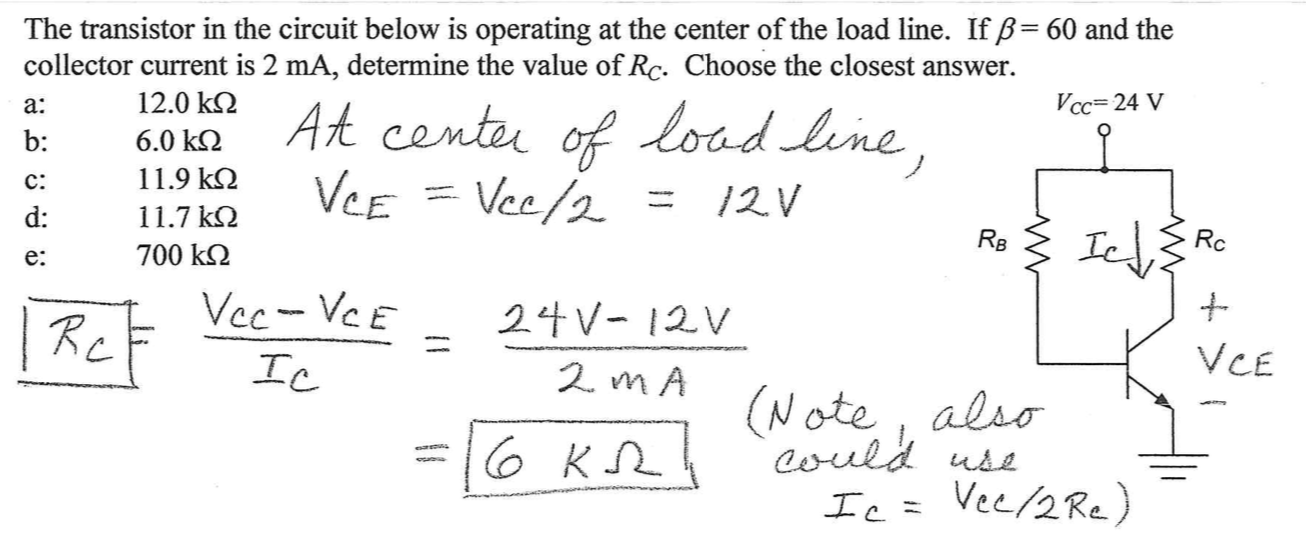 The transistor in the circuit below is operating at the center of the load line. If β = 60 and the
collector current is 2 mA, determine the value of RC. Choose the closest answer.
a: 12.0 kΩ
b: 6.0 kΩ
c: 11.9 kΩ
d: 11.7 kΩ
e: 700 kΩ
At center of load line,
VCE = Vcc/2 = 12V
VCC= 24 V
RB
Ic↓
RC
+
VCE
-
RC = Vcc - VCE / Ic = 24V - 12V / 2 mA
= 6 KΩ
(Note, also
could use
Ic = Vcc/2Rc)